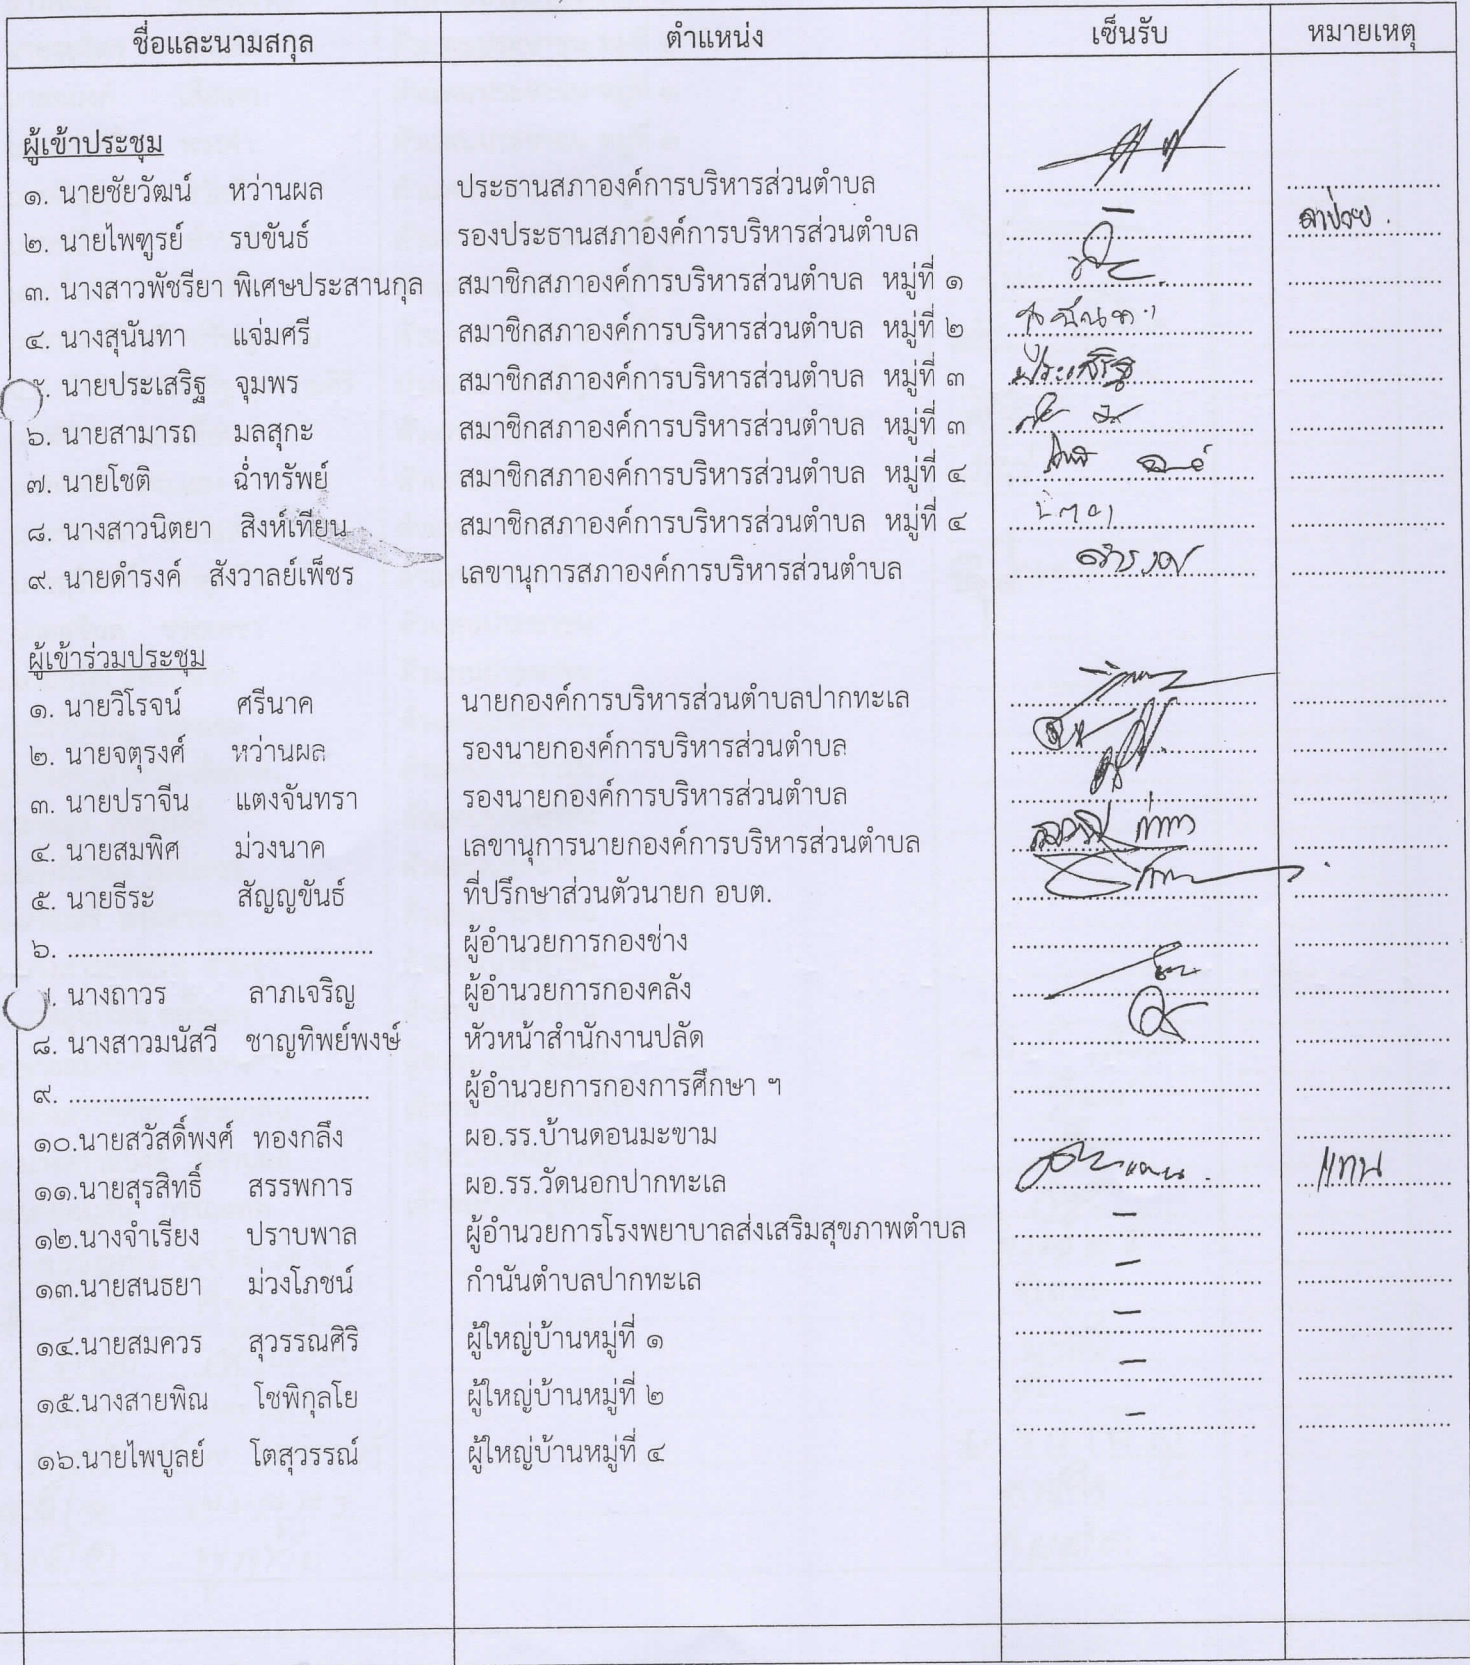 ชื่อและนามสกุล ตำแหน่ง เซ็นรับ หมายเหตุ
ผู้เข้าประชุม
๑. นายชัยวัฒน์ หว่านผล ประธานสภาองค์การบริหารส่วนตำบล
๒. นายไพฑูรย์ รบขันธ์ รองประธานสภาองค์การบริหารส่วนตำบล – ลาป่วย.
๓. นางสาวพัชรียา พิเศษประสานกุล สมาชิกสภาองค์การบริหารส่วนตำบล หมู่ที่ ๑
๔. นางสุนันทา แจ่มศรี สมาชิกสภาองค์การบริหารส่วนตำบล หมู่ที่ ๒ สุนันทา
๕. นายประเสริฐ จุมพร สมาชิกสภาองค์การบริหารส่วนตำบล หมู่ที่ ๓ ประเสริฐ
๖. นายสามารถ มลสุกะ สมาชิกสภาองค์การบริหารส่วนตำบล หมู่ที่ ๓
๗. นายโชติ ฉ่ำทรัพย์ สมาชิกสภาองค์การบริหารส่วนตำบล หมู่ที่ ๔
๘. นางสาวนิตยา สิงห์เทียน สมาชิกสภาองค์การบริหารส่วนตำบล หมู่ที่ ๔ นิตยา
๙. นายดำรงค์ สังวาลย์เพ็ชร เลขานุการสภาองค์การบริหารส่วนตำบล
ผู้เข้าร่วมประชุม
๑. นายวิโรจน์ ศรีนาค นายกองค์การบริหารส่วนตำบลปากทะเล
๒. นายจตุรงศ์ หว่านผล รองนายกองค์การบริหารส่วนตำบล
๓. นายปราจีน แตงจันทรา รองนายกองค์การบริหารส่วนตำบล
๔. นายสมพิศ ม่วงนาค เลขานุการนายกองค์การบริหารส่วนตำบล
๕. นายธีระ สัญญขันธ์ ที่ปรึกษาส่วนตัวนายก อบต.
๖. ............................................ ผู้อำนวยการกองช่าง
๗. นางถาวร ลาภเจริญ ผู้อำนวยการกองคลัง
๘. นางสาวมนัสวี ชาญทิพย์พงษ์ หัวหน้าสำนักงานปลัด
๙. ............................................ ผู้อำนวยการกองการศึกษา ฯ
๑๐.นายสวัสดิ์พงศ์ ทองกลึง ผอ.รร.บ้านดอนมะขาม
๑๑.นายสุรสิทธิ์ สรรพการ ผอ.รร.วัดนอกปากทะเล แทน
๑๒.นางจำเรียง ปราบพาล ผู้อำนวยการโรงพยาบาลส่งเสริมสุขภาพตำบล –
๑๓.นายสนธยา ม่วงโภชน์ กำนันตำบลปากทะเล –
๑๔.นายสมควร สุวรรณศิริ ผู้ใหญ่บ้านหมู่ที่ ๑ –
๑๕.นางสายพิณ โชพิกุลโย ผู้ใหญ่บ้านหมู่ที่ ๒ –
๑๖.นายไพบูลย์ โตสุวรรณ์ ผู้ใหญ่บ้านหมู่ที่ ๔ –